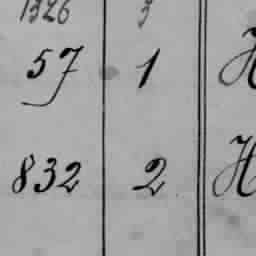 1326 3
57 1 H
832 2 H